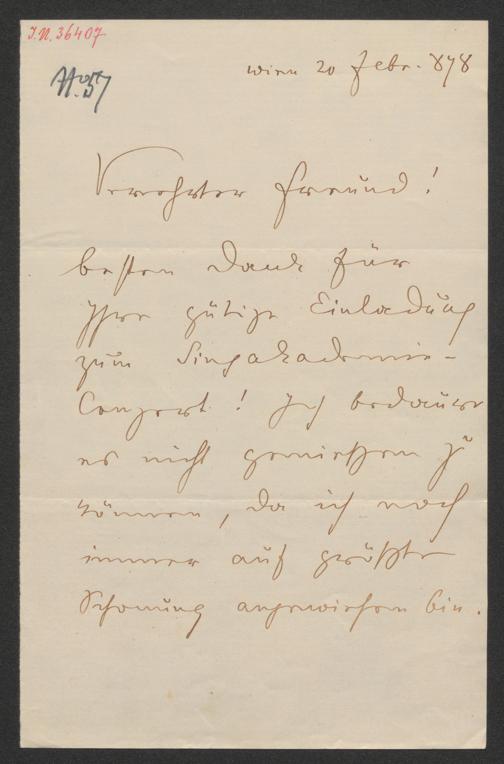 I.N. 36407
Wien 20 Febr. 878
Verehrter Freund!
besten Dank für
Ihre gütige Einladung
zum Singakademie-
Conzert! Ich bedauere
es nicht genießen zu
können, da ich noch
immer auf größte
Schonung angewiesen bin.